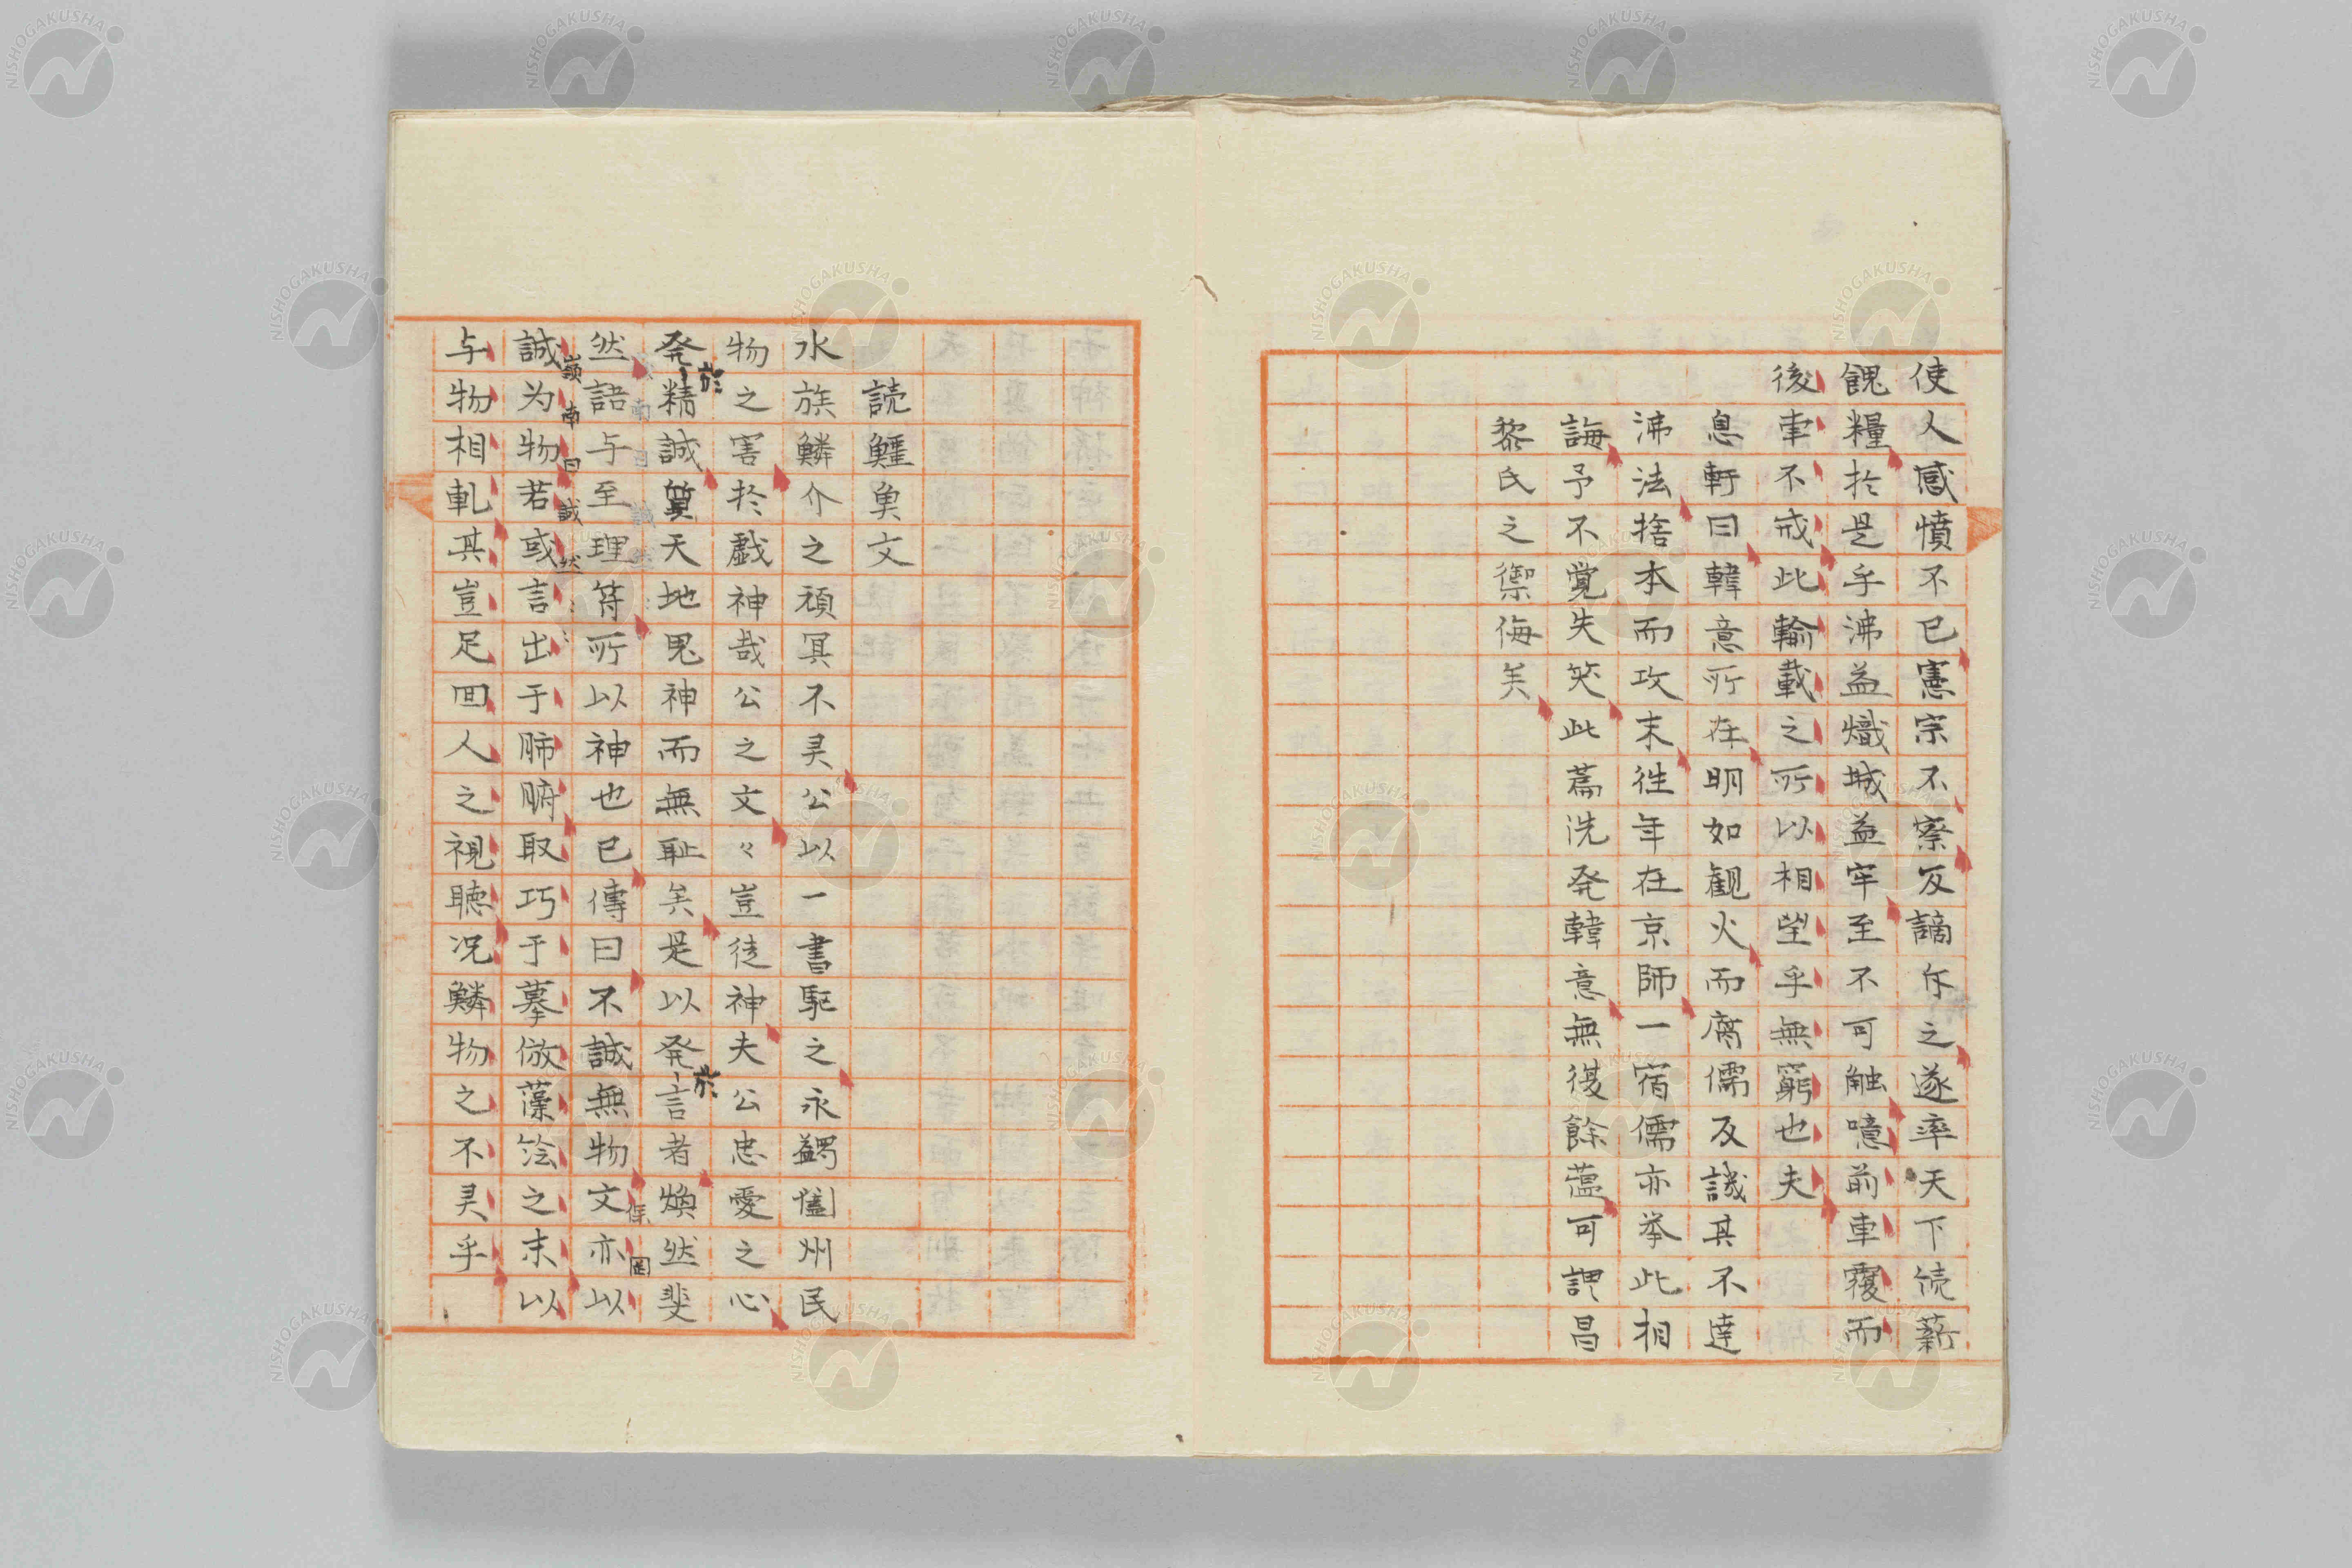 使人感憤不已憲宗不察反謫斥之遂率天下続薪
餽糧於是乎沸益熾城益牢至不可触噫前車覆而
後車不戒此輸載之所以相望乎無窮也夫
息軒曰韓意所在明如観火而腐儒反譏其不達
沸法捨本而攻末往年在京師一宿儒亦挙此相
誨予不覚失笑此篇洗発韓意無復餘薀可謂昌
黎氏之禦侮矣
読鱷魚文
水族鱗介之頑冥不灵公以一書駆之永蠲闔州民
物之害於戯神哉公之文々豈徒神夫公忠愛之心
発精誠質天地鬼神而無耻矣是以発言者煥然斐
於
於
然語与至理符所以神也已傳曰不誠無物文亦以
嶺南曰誠然
誠为物若或言出于肺腑取巧于摹倣藻絵之末以
与物相軋其豈足回人之視聴况鱗物之不灵乎
NISHOGAKUSHA